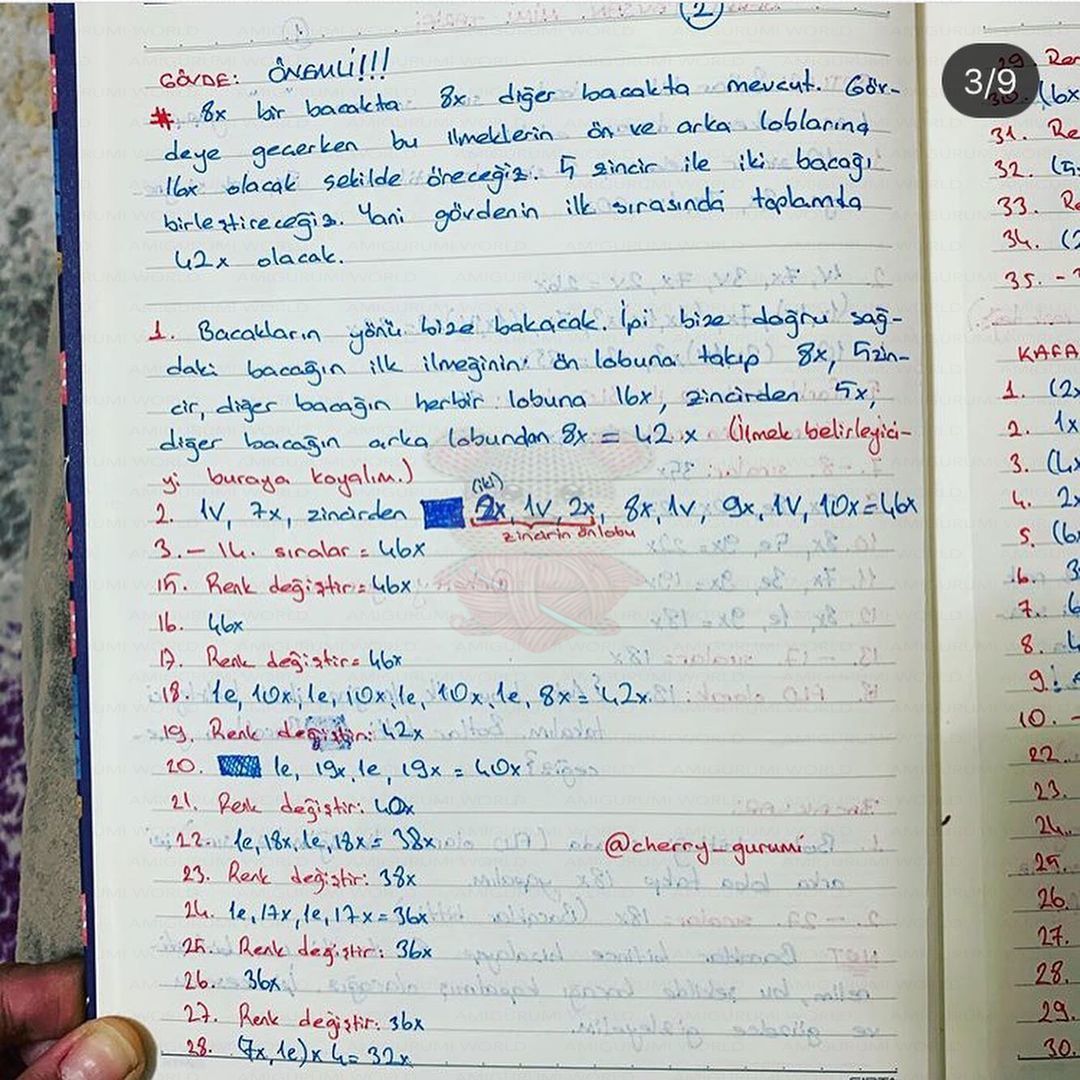 2
3/9
GÖVDE: ÖNEMLİ!!!
# 8x bir bacakta 8x diğer bacakta mevcut. Göv-
deye geçerken bu ilmeklerin ön ve arka loblarına
16x olacak şekilde öreceğiz. 5 zincir ile iki bacağı
birleştireceğiz. Yani gövdenin ilk sırasında toplamda
42x olacak.
1. Bacakların yönü bize bakacak. İpi bize doğru sağ-
daki bacağın ilk ilmeğinin ön lobuna takıp 8x, 5zin-
cir, diğer bacağın herbir lobuna 16x, zincirden 5x,
diğer bacağın arka lobundan 8x = 42x (İlmek belirleyici-
yi buraya koyalım.)
(iki)
2. 1V, 7x, zincirden 2x, 1V, 2x, 8x, 1V, 9x, 1V, 10x=46x
zincirin ön lobu
3.- 14. sıralar = 46x
15. Renk değiştir= 46x
16. 46x
17. Renk değiştir= 46x
18. 1e, 10x, 1e, 10x, 1e, 10x, 1e, 8x = 42x.
19. Renk değiştir: 42x
20. 1e, 19x, 1e, 19x = 40x
21. Renk değiştir: 40x
22. 1e, 18x, 1e, 18x = 38x
@cherry_gurumi
23. Renk değiştir: 38x
24. 1e, 17x, 1e, 17x = 36x
25. Renk değiştir: 36x
26. 36x
27. Renk değiştir: 36x
28. (7x, 1e) x 4 = 32x
29. Ren
30. (6x
31. Re
32. (5
33. Re
34. (2
35. -
KAFA
1. (2x
2. 1x
3. (4x
4. 2x
5. (6x
6. 3
7. 6
8. 4
9.
10. -
22.
23.
24.
25.
26.
27.
28.
29.
30.
AMIGURUMI WORLD